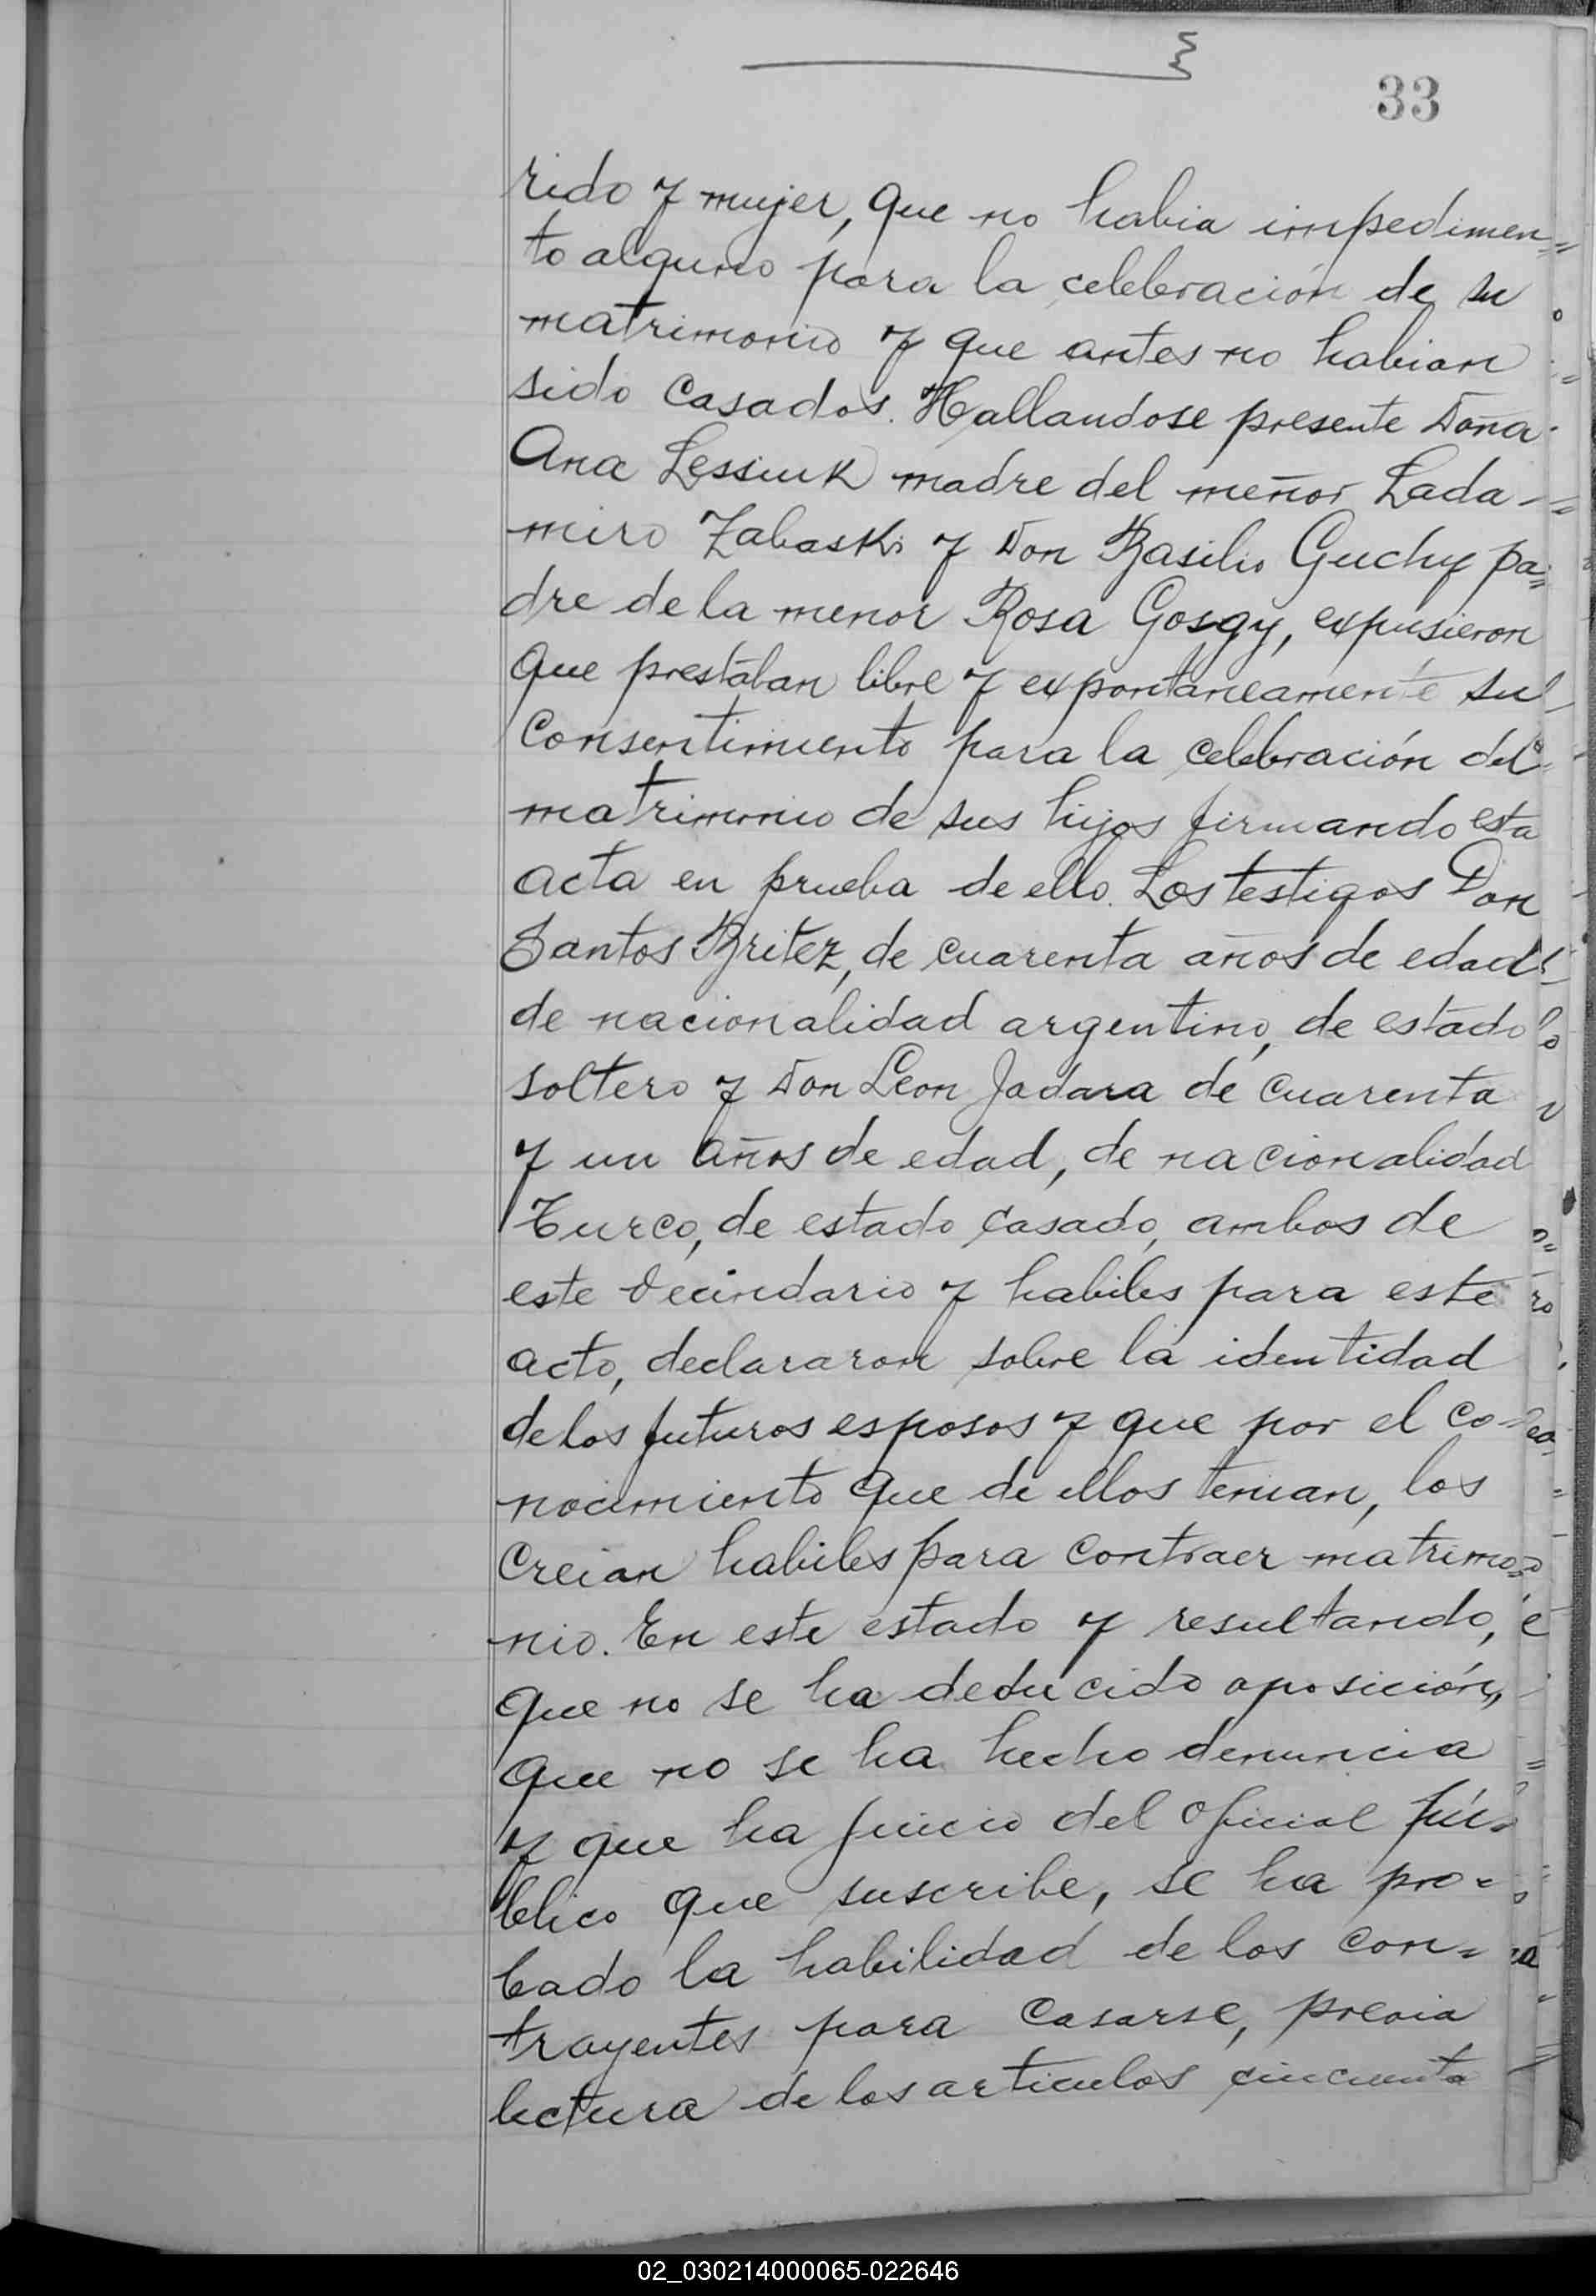 33
rido y mujer, que no habia impedimen=
to alguno para la celebración de su
matrimonio y que antes no habian
sido casados. Hallandose presente Doña
Ana Lessiuk madre del meñor Lada-
miro Zabaski y Don Basilio Guchy pa=
dre de la menor Rosa Gosgy, expusieron
que prestaban libre y expontaneamente su
consentimiento para la celebración del
matrimonio de sus hijos firmando esta
acta en prueba de ello. Los testigos Don
Santos Britez, de cuarenta años de edad
de nacionalidad argentino, de estado
soltero y Don Leon Jadara de cuarenta
y un años de edad, de nacionalidad
Turco, de estado casado, ambos de
este vecindario y habiles para este
acto, declararon sobre la identidad
de los futuros esposos y que por el co-
nocimiento que de ellos tenian, los
creian habiles para contraer matrimo=
nio. En este estado y resultando,
que no se ha deducido oposición,
que no se ha hecho denuncia
y que ha juicio del oficial pú-
blico que suscribe, se ha pro-
bado la habilidad de los con=
trayentes para casarse, previa
lectura de los articulos cincuenta
02_030214000065-022646